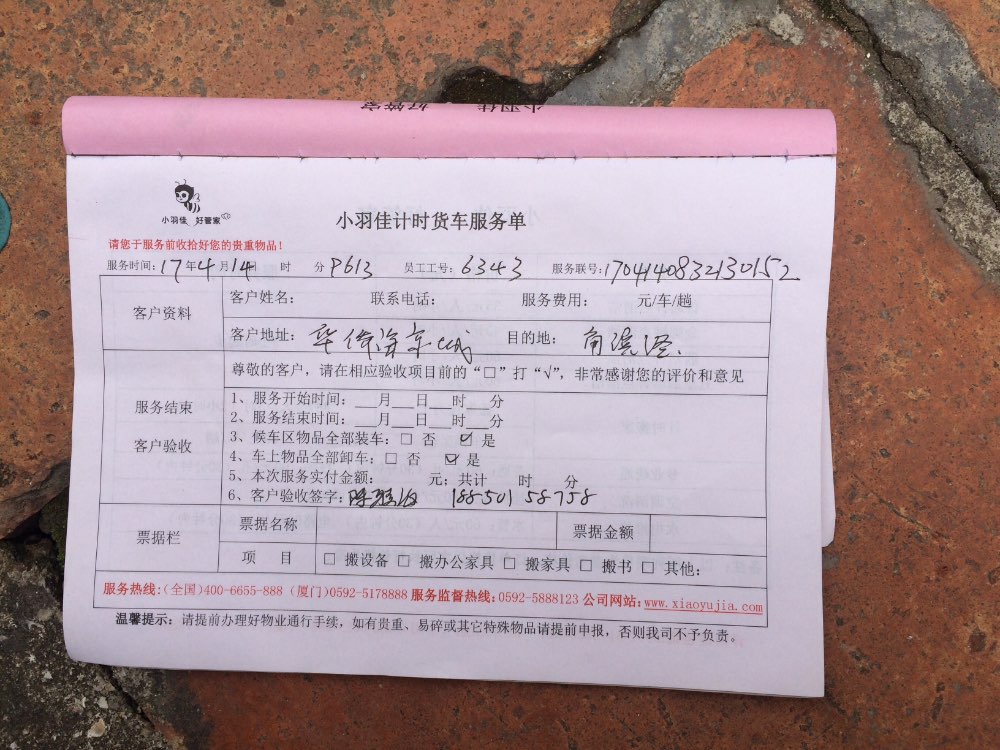 小羽佳 好管家
小羽佳 好管家
小羽佳计时货车服务单
请您于服务前收拾好您的贵重物品！
服务时间：17年4月14日 时 分P613 员工工号：6343 服务联号：1704140832130152
客户资料
客户姓名： 联系电话： 服务费用： 元/车/趟
客户地址： 目的地：角滨泾
服务结束
客户验收
尊敬的客户，请在相应验收项目前的“□”打“√”，非常感谢您的评价和意见
1、服务开始时间：___月___日___时___分
2、服务结束时间：___月___日___时___分
3、候车区物品全部装车：□ 否 ☑ 是
4、车上物品全部卸车：□ 否 ☑ 是
5、本次服务实付金额： 元；共计 时 分
6、客户验收签字： 18850158758
票据栏
票据名称 票据金额
项 目 □ 搬设备 □ 搬办公家具 □ 搬家具 □ 搬书 □ 其他：
服务热线：（全国）400-6655-888（厦门）0592-5178888 服务监督热线：0592-5888123 公司网站：www.xiaoyujia.com
温馨提示：请提前办理好物业通行手续，如有贵重、易碎或其它特殊物品请提前申报，否则我司不予负责。